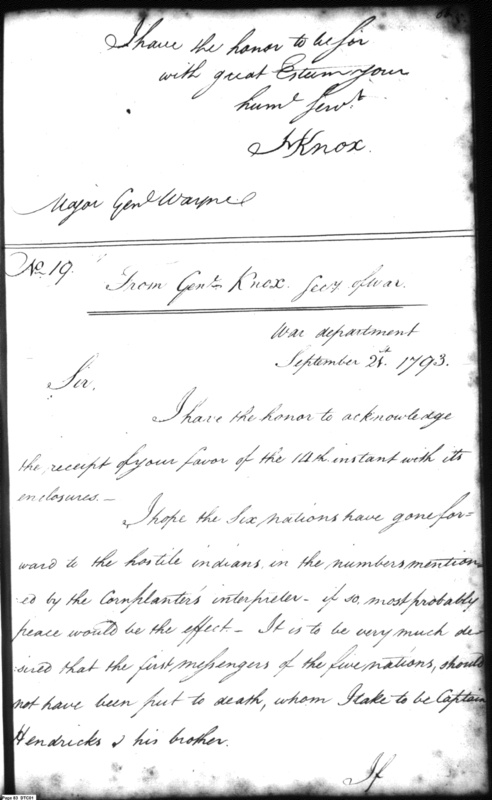 I have the honor to be sir
with great Esteem your
huml. servt.
HKnox.
Major Genl. Wayne
No. 19.
From Genl. Knox. Secy. of war.
War department
September 21st. 1793.
Sir.
I have the honor to acknowledge
the receipt of your favor of the 14th instant with its
enclosures.—
I hope the Six nations have gone for=
ward to the hostile indians, in the numbers mention
ed by the Cornplanter's interpreter - if so, most probably
peace would be the effect.— It is to be very much de=
sired that the first messengers of the five nations, should
not have been put to death, whom I take to be Captain
Hendricks & his brother.
If
Page 93 DTC01